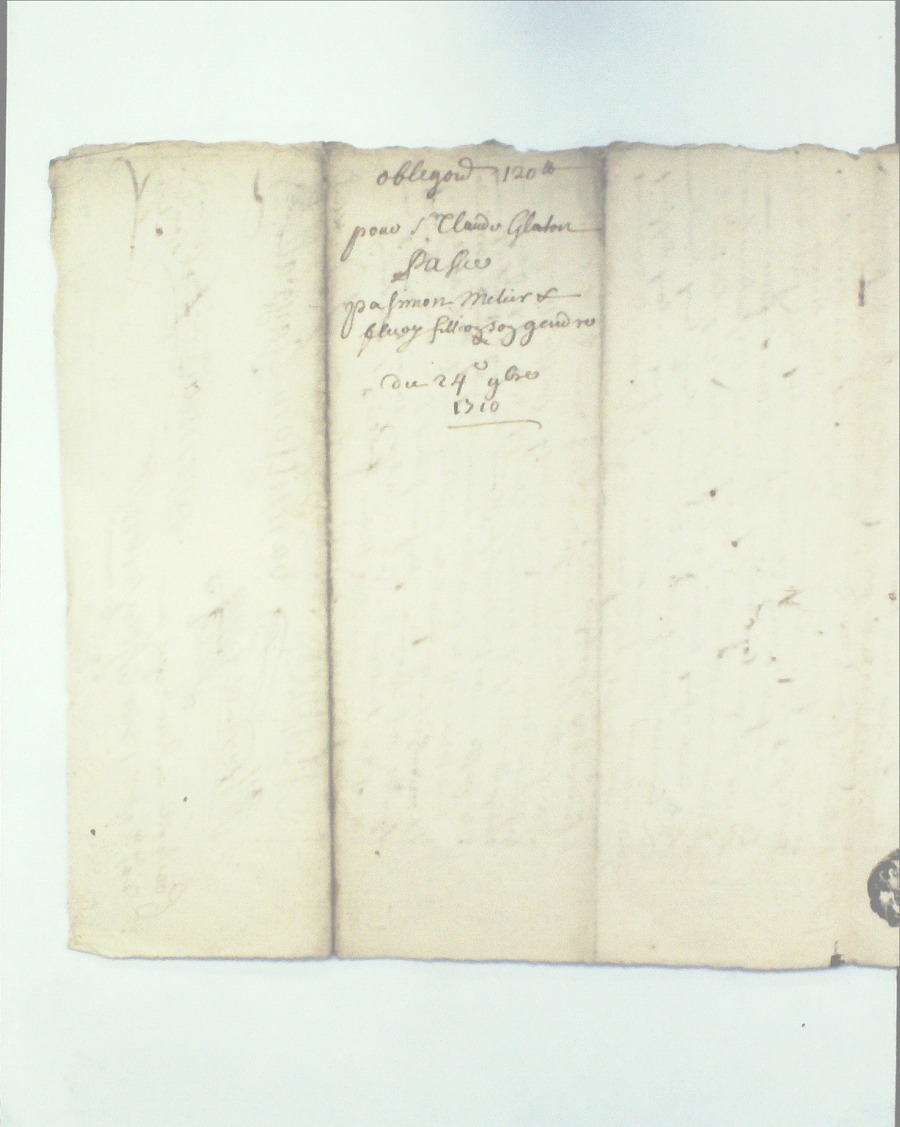 obligaōn 120 ₶
pour Sr Claude Glaton
Passée
par Simon Metier &
fillion son gendre
du 24e 9bre
1710